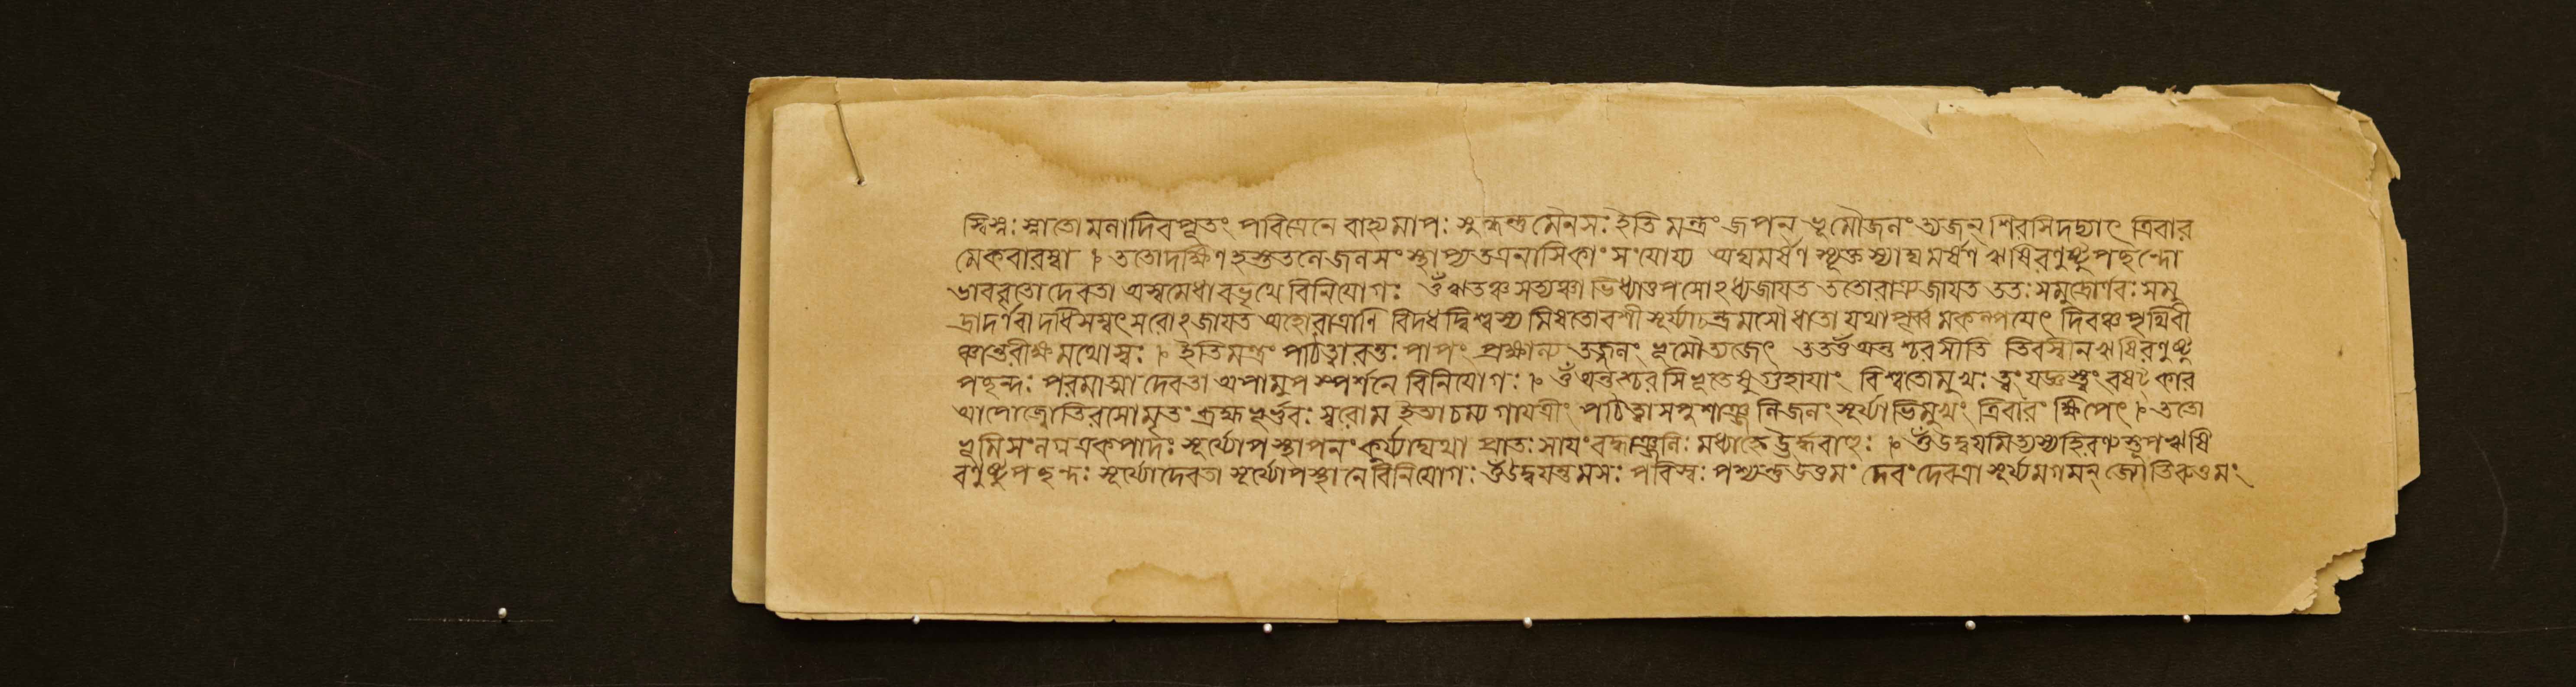 স্বিন্নঃ স্নাতো মলাদিব পূতং পবিত্রেনে বাজ্যমাপঃ সুন্ধন্তু মৈনসঃ ইতি মন্ত্রং জপন্ ভূমৌজলং ত্যজন্ শিরসিদদ্যাৎ ত্রিবার
মেকবারম্বা ৷ ততোদক্ষিণ হস্ততলে জলসং স্থাপ্য তত্রনাসিকাং সংযোয্য অঘমর্ষণ সূক্তস্যাঘমর্ষণ ঋষিরণুষ্টুপছন্দো
ভাববৃতো দেবতা অস্বমেধাবভৃথে বিনিযোগঃ ওঁ ঋতঞ্চ সত্যঞ্চা ভিধ্যাত্তপসোঽধ্যজাযত ততোরাত্রজাযত ততঃ সমুদ্রোর্ণবঃ সমু
দ্রাদর্ণবা দধিসম্বৎসরোঽজাযত অহোরাত্রানি বিদধদ্বিশ্বস্য মিষতোবশী সূর্য্যাচন্দ্রমসৌ ধাতো যথাপূর্ব্ব মকল্পযেৎ দিবঞ্চ পৃথিবী
ঞ্চান্তরীক্ষ মথোস্বঃ ৷ ইতিমন্ত্রং পঠিত্বারন্তঃ পাপং প্রক্ষাল্য তজ্জলং ভূমৌত্যজেৎ ততওঁ অন্তশ্চরসীতি তিরস্বীন ঋষিরণুষ্টু
পছন্দঃ পরমাত্মা দেবতা অপামুপ স্পর্শনে বিনিযোগঃ ৷ ওঁ অন্তশ্চরসি ভূতেষু গুহাযাং বিশ্বতোমুখঃ ত্বং যজ্ঞস্ত্বং বষট্ কার
আপোজ্যোতিরসোমৃতং ব্রহ্ম ভূর্ভুবঃ স্বরোম ইত্যাচম্য গাযত্রীং পঠিত্বা সপুশাঞ্জলি জলং সূর্য্যাভিমুখং ত্রিবারং ক্ষিপেৎ ৷ ততো
ভূমিসংলগ্ন একপার্দঃ সূর্য্যোপস্থাপনং কুর্য্যাদ্যথা প্রাতঃ সাযং বদ্ধাঞ্জলিঃ মধ্যাহ্নে দ্ভুর্দ্ধবাহুঃ ৷ ওঁউদ্বযমিত্যস্যহিরণ্যস্তূপঋষি
রণুষ্টুপছন্দঃ সূর্য্যোদেবতা সূর্য্যোপস্থানেবিনিযোগঃ ওঁউদ্বযন্তমসঃ পরিস্বঃ পশ্যন্তউত্তমং দেবং দেবত্রা সূর্য্যমগমন্ জ্যোতিরুত্তমং